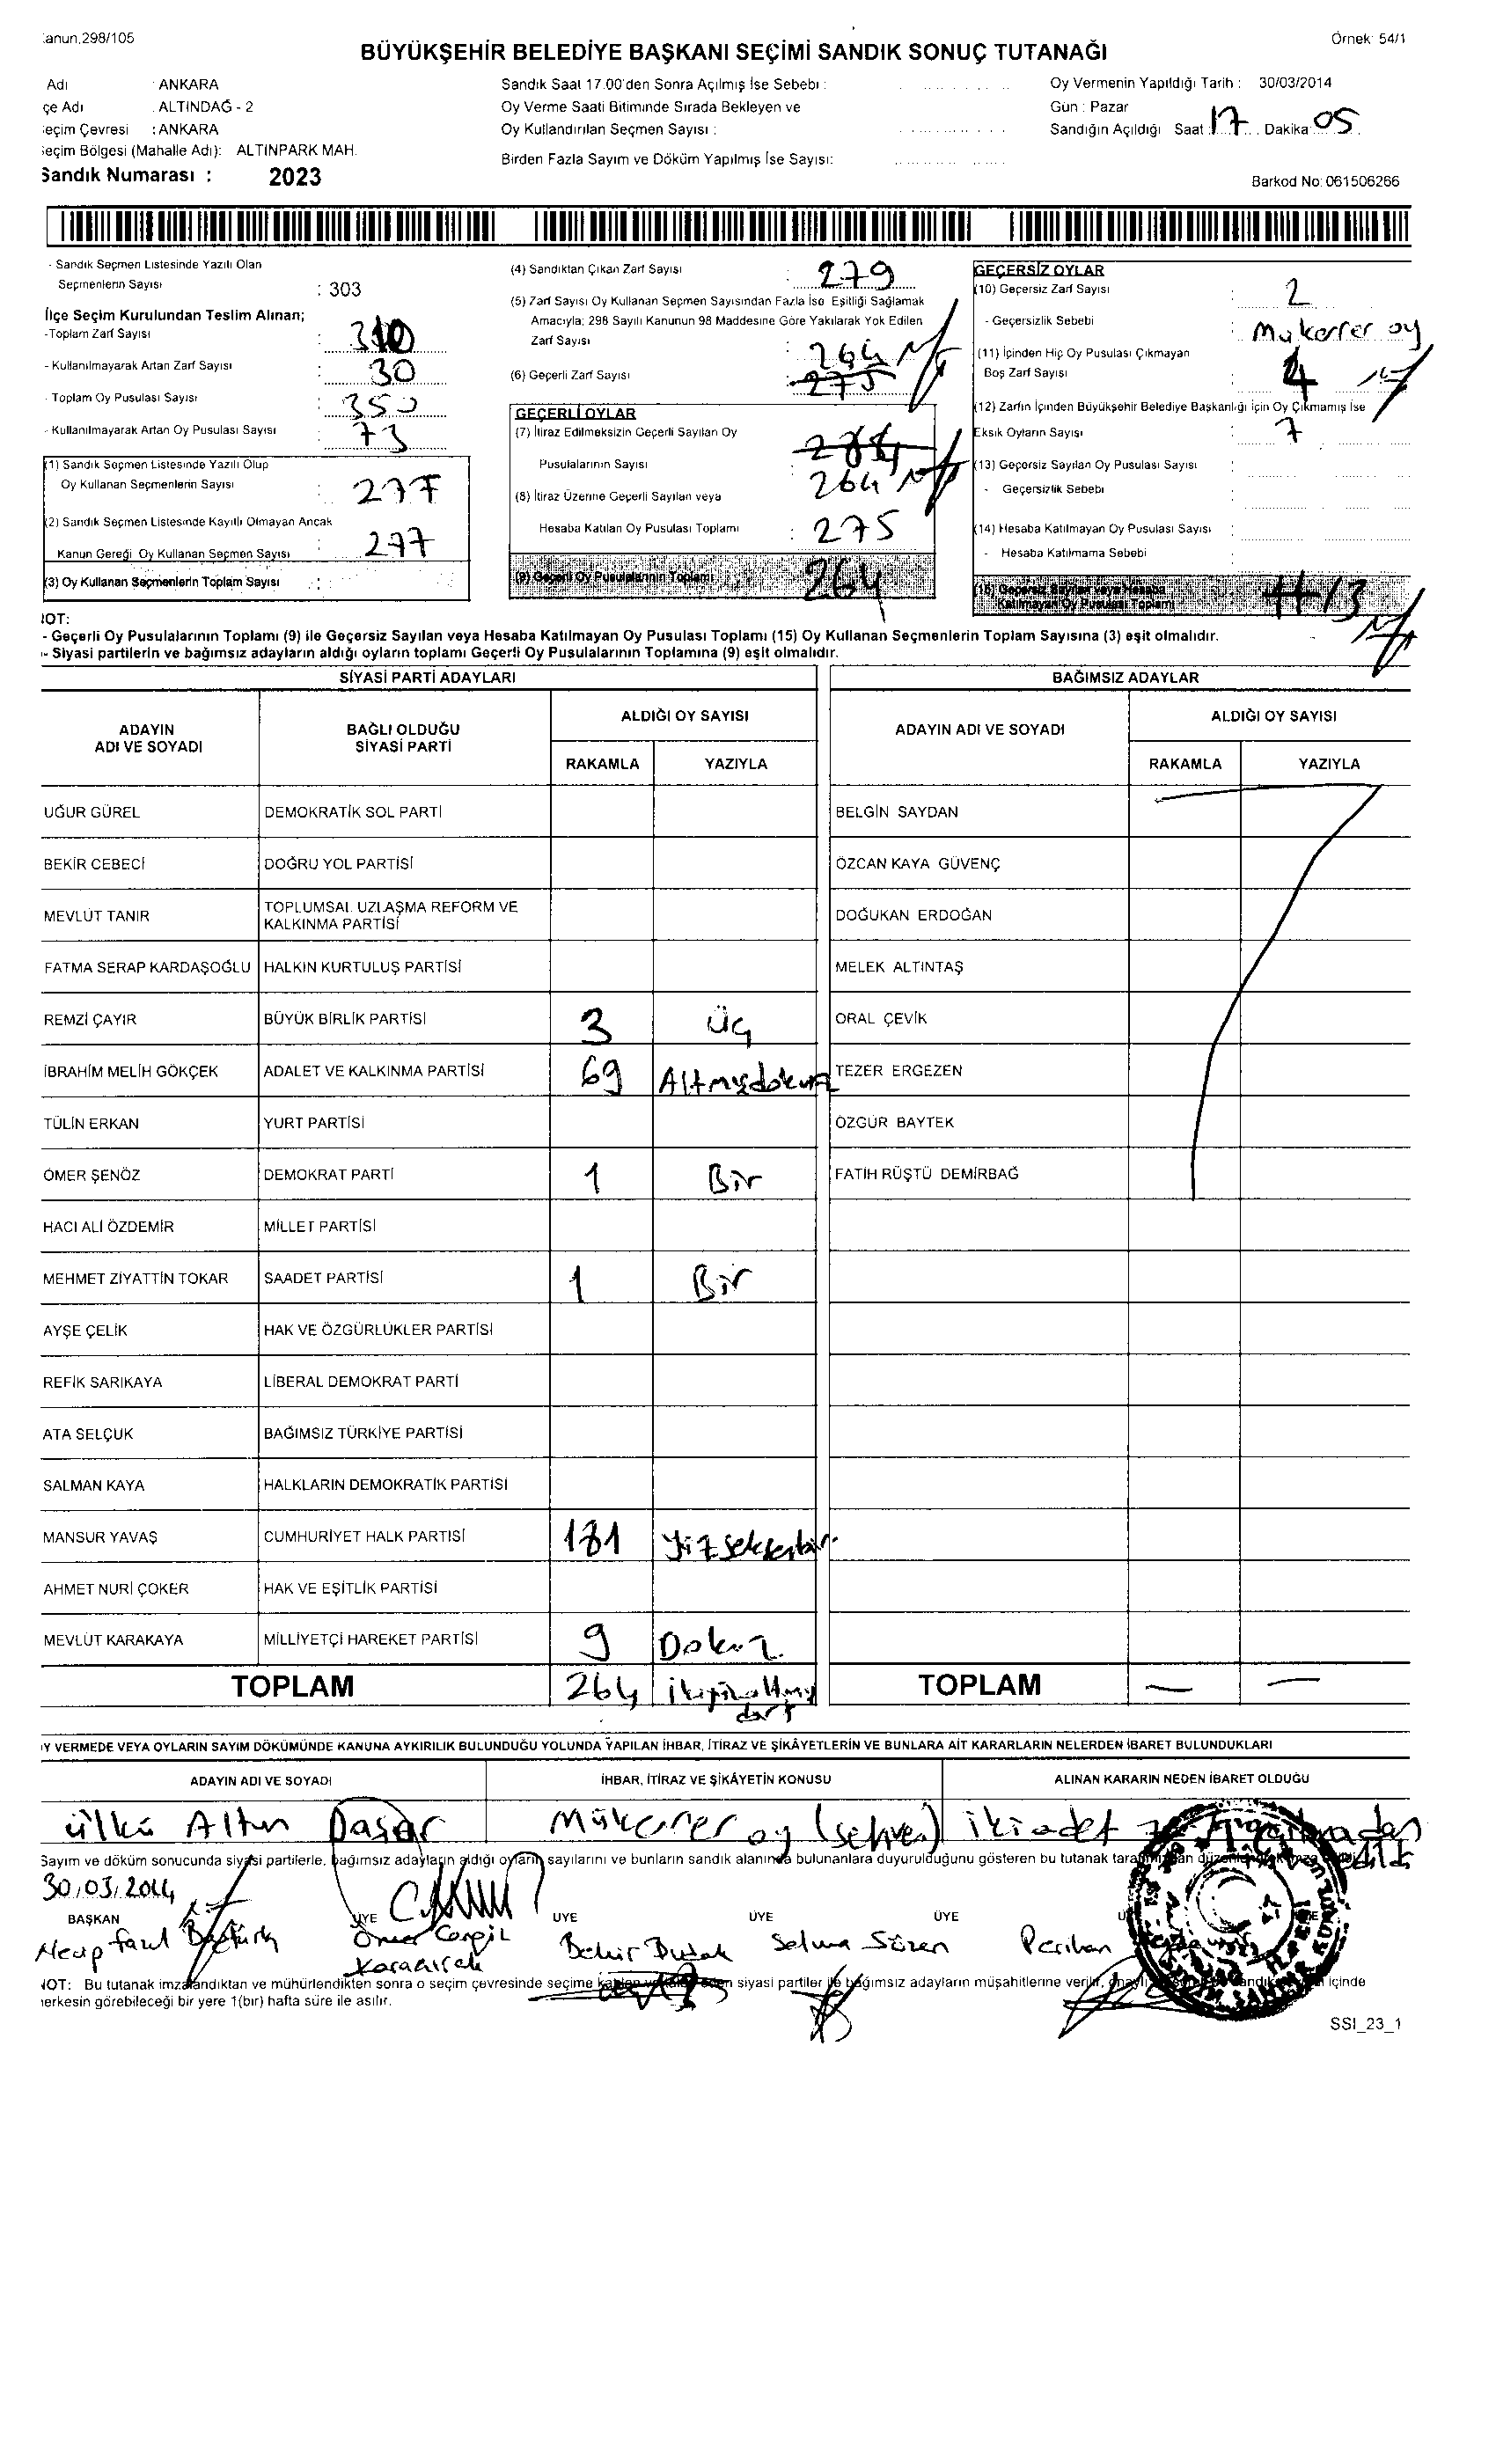 anun.298/105
Örnek: 54/1
BÜYÜKŞEHİR BELEDİYE BAŞKANI SEÇİMİ SANDIK SONUÇ TUTANAĞI
Adı : ANKARA
çe Adı : ALTINDAĞ - 2
eçim Çevresi : ANKARA
eçim Bölgesi (Mahalle Adı): ALTINPARK MAH.
Sandık Numarası : 2023
Sandık Saat 17.00'den Sonra Açılmış İse Sebebi :
Oy Verme Saati Bitiminde Sırada Bekleyen ve
Oy Kullandırılan Seçmen Sayısı :
Birden Fazla Sayım ve Döküm Yapılmış İse Sayısı:
Oy Vermenin Yapıldığı Tarih : 30/03/2014
Gün : Pazar
Sandığın Açıldığı Saat : 17 Dakika 05
Barkod No: 061506266
- Sandık Seçmen Listesinde Yazılı Olan
Seçmenlerin Sayısı : 303
İlçe Seçim Kurulundan Teslim Alınan;
-Toplam Zarf Sayısı : 310
- Kullanılmayarak Artan Zarf Sayısı : 30
- Toplam Oy Pusulası Sayısı : 350
- Kullanılmayarak Artan Oy Pusulası Sayısı : 73
(1) Sandık Seçmen Listesinde Yazılı Olup
Oy Kullanan Seçmenlerin Sayısı : 277
(2) Sandık Seçmen Listesinde Kayıtlı Olmayan Ancak
Kanun Gereği Oy Kullanan Seçmen Sayısı : 277
(3) Oy Kullanan Seçmenlerin Toplam Sayısı :
(4) Sandıktan Çıkan Zarf Sayısı : 279
(5) Zarf Sayısı Oy Kullanan Seçmen Sayısından Fazla İse Eşitliği Sağlamak
Amacıyla; 298 Sayılı Kanunun 98 Maddesine Göre Yakılarak Yok Edilen
Zarf Sayısı : 264
(6) Geçerli Zarf Sayısı : 275
GEÇERLİ OYLAR
(7) İtiraz Edilmeksizin Geçerli Sayılan Oy
Pusulalarının Sayısı 264
(8) İtiraz Üzerine Geçerli Sayılan veya
Hesaba Katılan Oy Pusulası Toplamı : 275
(9) Geçerli Oy Pusulalarının Toplamı 264
GEÇERSİZ OYLAR
(10) Geçersiz Zarf Sayısı : 2
- Geçersizlik Sebebi : Mükerrer oy
(11) İçinden Hiç Oy Pusulası Çıkmayan
Boş Zarf Sayısı 4
(12) Zarfın İçinden Büyükşehir Belediye Başkanlığı İçin Oy Çıkmamış İse
Eksik Oyların Sayısı : 7
(13) Geçersiz Sayılan Oy Pusulası Sayısı :
- Geçersizlik Sebebi
(14) Hesaba Katılmayan Oy Pusulası Sayısı :
- Hesaba Katılmama Sebebi
(15) Geçersiz Sayılan veya Hesaba
Katılmayan Oy Pusulası Toplamı 13
NOT:
- Geçerli Oy Pusulalarının Toplamı (9) ile Geçersiz Sayılan veya Hesaba Katılmayan Oy Pusulası Toplamı (15) Oy Kullanan Seçmenlerin Toplam Sayısına (3) eşit olmalıdır.
- Siyasi partilerin ve bağımsız adayların aldığı oyların toplamı Geçerli Oy Pusulalarının Toplamına (9) eşit olmalıdır.
SİYASİ PARTİ ADAYLARI BAĞIMSIZ ADAYLAR
ADAYIN ADI VE SOYADI BAĞLI OLDUĞU SİYASİ PARTİ ALDIĞI OY SAYISI ADAYIN ADI VE SOYADI ALDIĞI OY SAYISI
RAKAMLA YAZIYLA RAKAMLA YAZIYLA
UĞUR GÜREL DEMOKRATİK SOL PARTİ BELGİN SAYDAN
BEKİR CEBECİ DOĞRU YOL PARTİSİ ÖZCAN KAYA GÜVENÇ
MEVLÜT TANIR TOPLUMSAL UZLAŞMA REFORM VE KALKINMA PARTİSİ DOĞUKAN ERDOĞAN
FATMA SERAP KARDAŞOĞLU HALKIN KURTULUŞ PARTİSİ MELEK ALTINTAŞ
REMZİ ÇAYIR BÜYÜK BİRLİK PARTİSİ 3 Üç ORAL ÇEVİK
İBRAHİM MELİH GÖKÇEK ADALET VE KALKINMA PARTİSİ 69 Altmışdokuz TEZER ERGEZEN
TÜLİN ERKAN YURT PARTİSİ ÖZGÜR BAYTEK
ÖMER ŞENÖZ DEMOKRAT PARTİ 1 Bir FATİH RÜŞTÜ DEMİRBAĞ
HACI ALİ ÖZDEMİR MİLLET PARTİSİ
MEHMET ZİYATTİN TOKAR SAADET PARTİSİ 1 Bir
AYŞE ÇELİK HAK VE ÖZGÜRLÜKLER PARTİSİ
REFİK SARIKAYA LİBERAL DEMOKRAT PARTİ
ATA SELÇUK BAĞIMSIZ TÜRKİYE PARTİSİ
SALMAN KAYA HALKLARIN DEMOKRATİK PARTİSİ
MANSUR YAVAŞ CUMHURİYET HALK PARTİSİ 181 Yüzseksenbir
AHMET NURİ ÇOKER HAK VE EŞİTLİK PARTİSİ
MEVLÜT KARAKAYA MİLLİYETÇİ HAREKET PARTİSİ 9 Dokuz
TOPLAM 264 ikiyüzaltmış dört TOPLAM — —
Y VERMEDE VEYA OYLARIN SAYIM DÖKÜMÜNDE KANUNA AYKIRILIK BULUNDUĞU YOLUNDA YAPILAN İHBAR, İTİRAZ VE ŞİKÂYETLERİN VE BUNLARA AİT KARARLARIN NELERDEN İBARET BULUNDUKLARI
ADAYIN ADI VE SOYADI İHBAR, İTİRAZ VE ŞİKÂYETİN KONUSU ALINAN KARARIN NEDEN İBARET OLDUĞU
ülkü Altun Daşar Mükerrer oy (sehven) iki adet
Sayım ve döküm sonucunda siyasi partilerle, bağımsız adayların aldığı oyların sayılarını ve bunların sandık alanında bulunanlara duyurulduğunu gösteren bu tutanak
30.03.2014
BAŞKAN ÜYE ÜYE ÜYE ÜYE
Ömer Cengiz Bekir Selma Perihan
NOT: Bu tutanak imzalandıktan ve mühürlendikten sonra o seçim çevresinde seçime siyasi partiler ile bağımsız adayların müşahitlerine içinde
herkesin görebileceği bir yere 1(bir) hafta süre ile asılır.
SSI_23_1